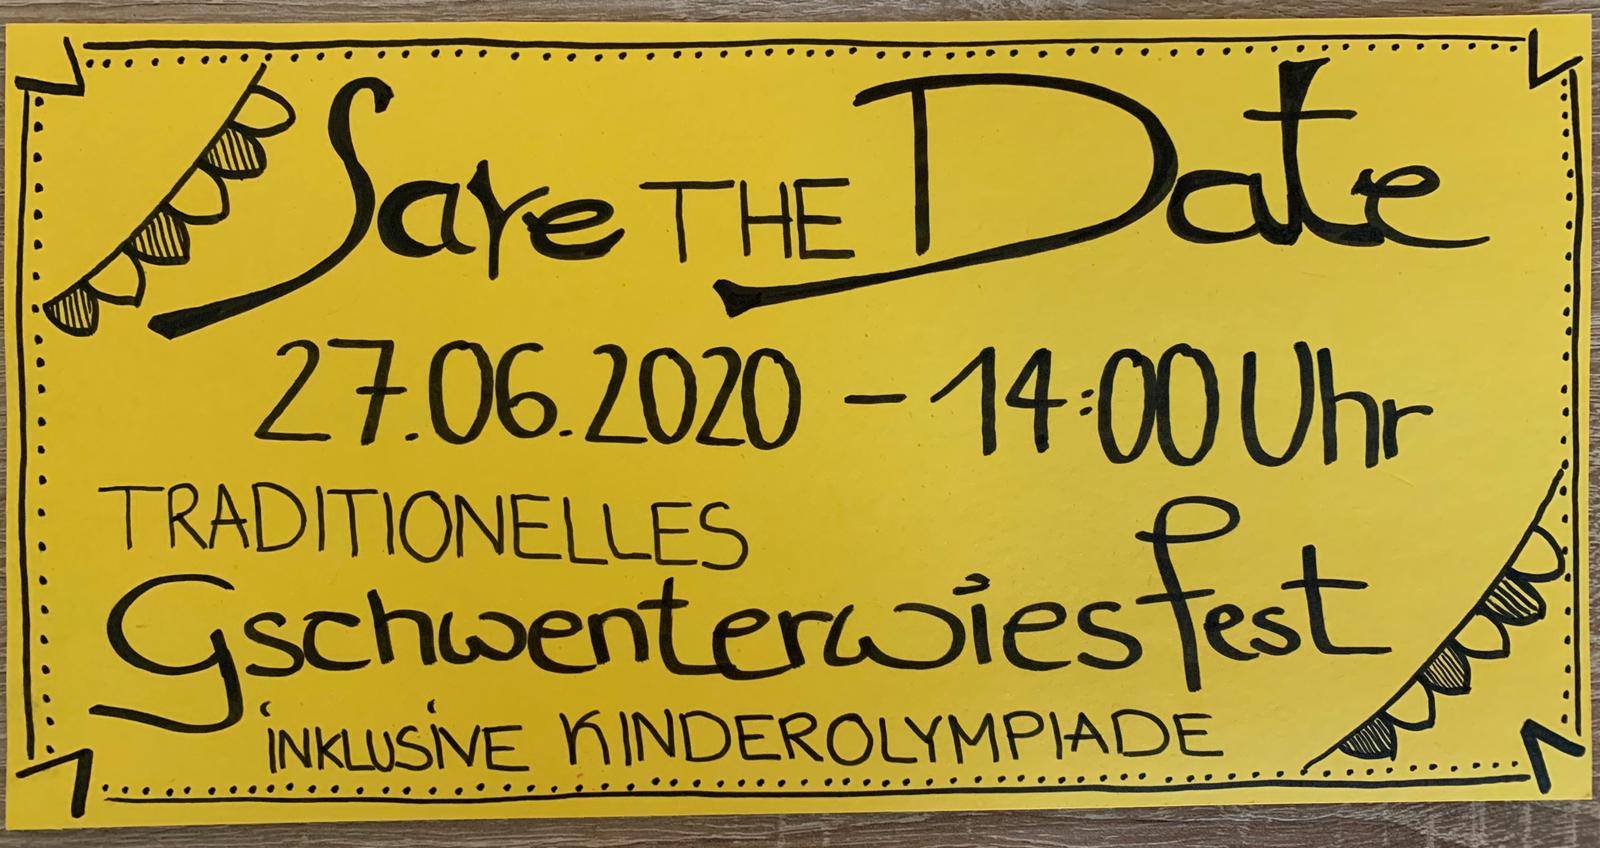 Save THE Date
27.06.2020 - 14:00 Uhr
TRADITIONELLES
Gschwenterwiesfest
INKLUSIVE KINDEROLYMPIADE